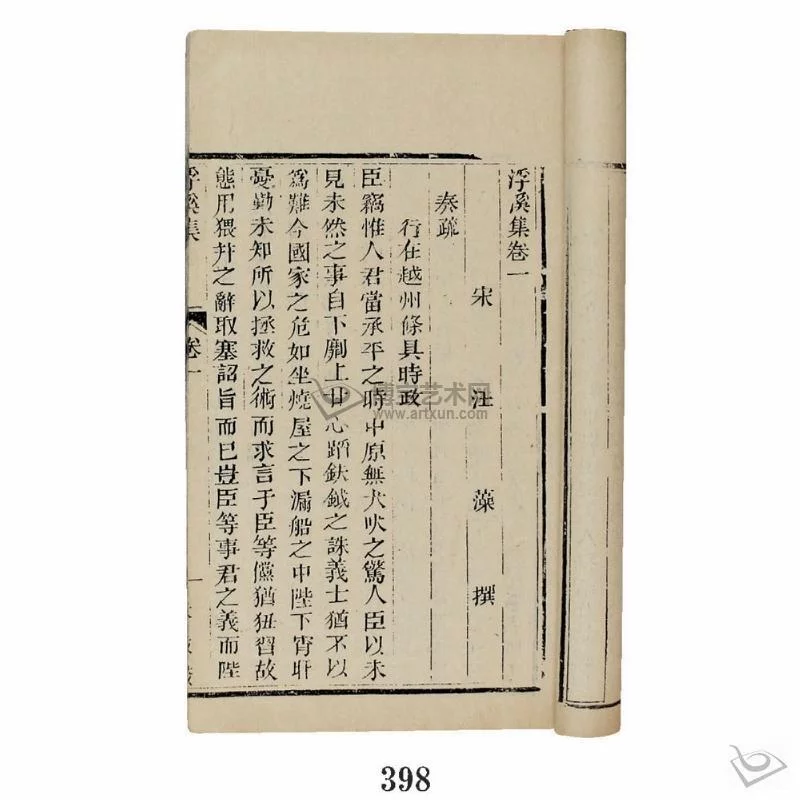 浮溪集卷一
宋 汪 藻 撰
奏疏
行在越州條具時政
臣竊惟人君當承平之時中原無犬吠之驚人臣以未
見未然之事自下劘上甘心蹈鈇鉞之誅義士猶不以
爲難今國家之危如坐燒屋之下漏船之中陛下宵旰
憂勤未知所以拯救之術而求言于臣等儻猶狃習故
態用猥并之辭取塞詔旨而已豈臣等事君之義而陛
浮溪集
卷一
一
博宝艺术网
www.artxun.com
398